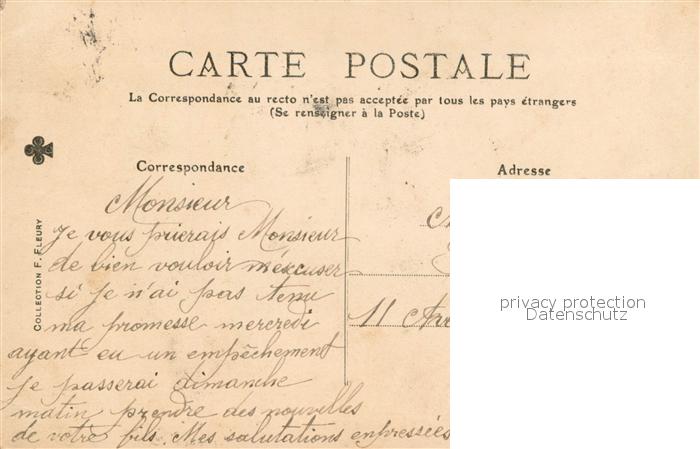 CARTE POSTALE
La Correspondance au recto n'est pas acceptée par tous les pays étrangers
(Se renseigner à la Poste)
Correspondance
Adresse
COLLECTION F. FLEURY
Monsieur
Je vous prierais Monsieur
de bien vouloir m'éxcuser
si je n'ai pas tenu
ma promesse mercredi
ayant eu un empêchement
je passerai dimanche
matin prendre des nouvelles
de votre fils. Mes salutations enpressées
11
privacy protection
Datenschutz